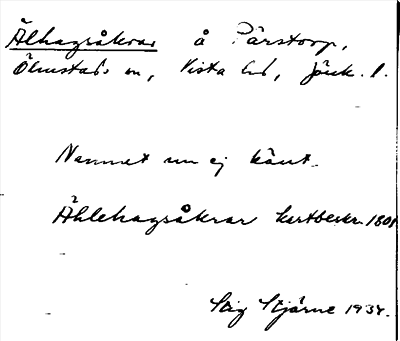 Älhagsåkrar å Pärstorp,
Ölmstads sn, Vista hd, Jönk. l.
Namnet nu ej känt.
Ählehagsåkrar kartbeskr. 1801
Stig Stjärne 1934.